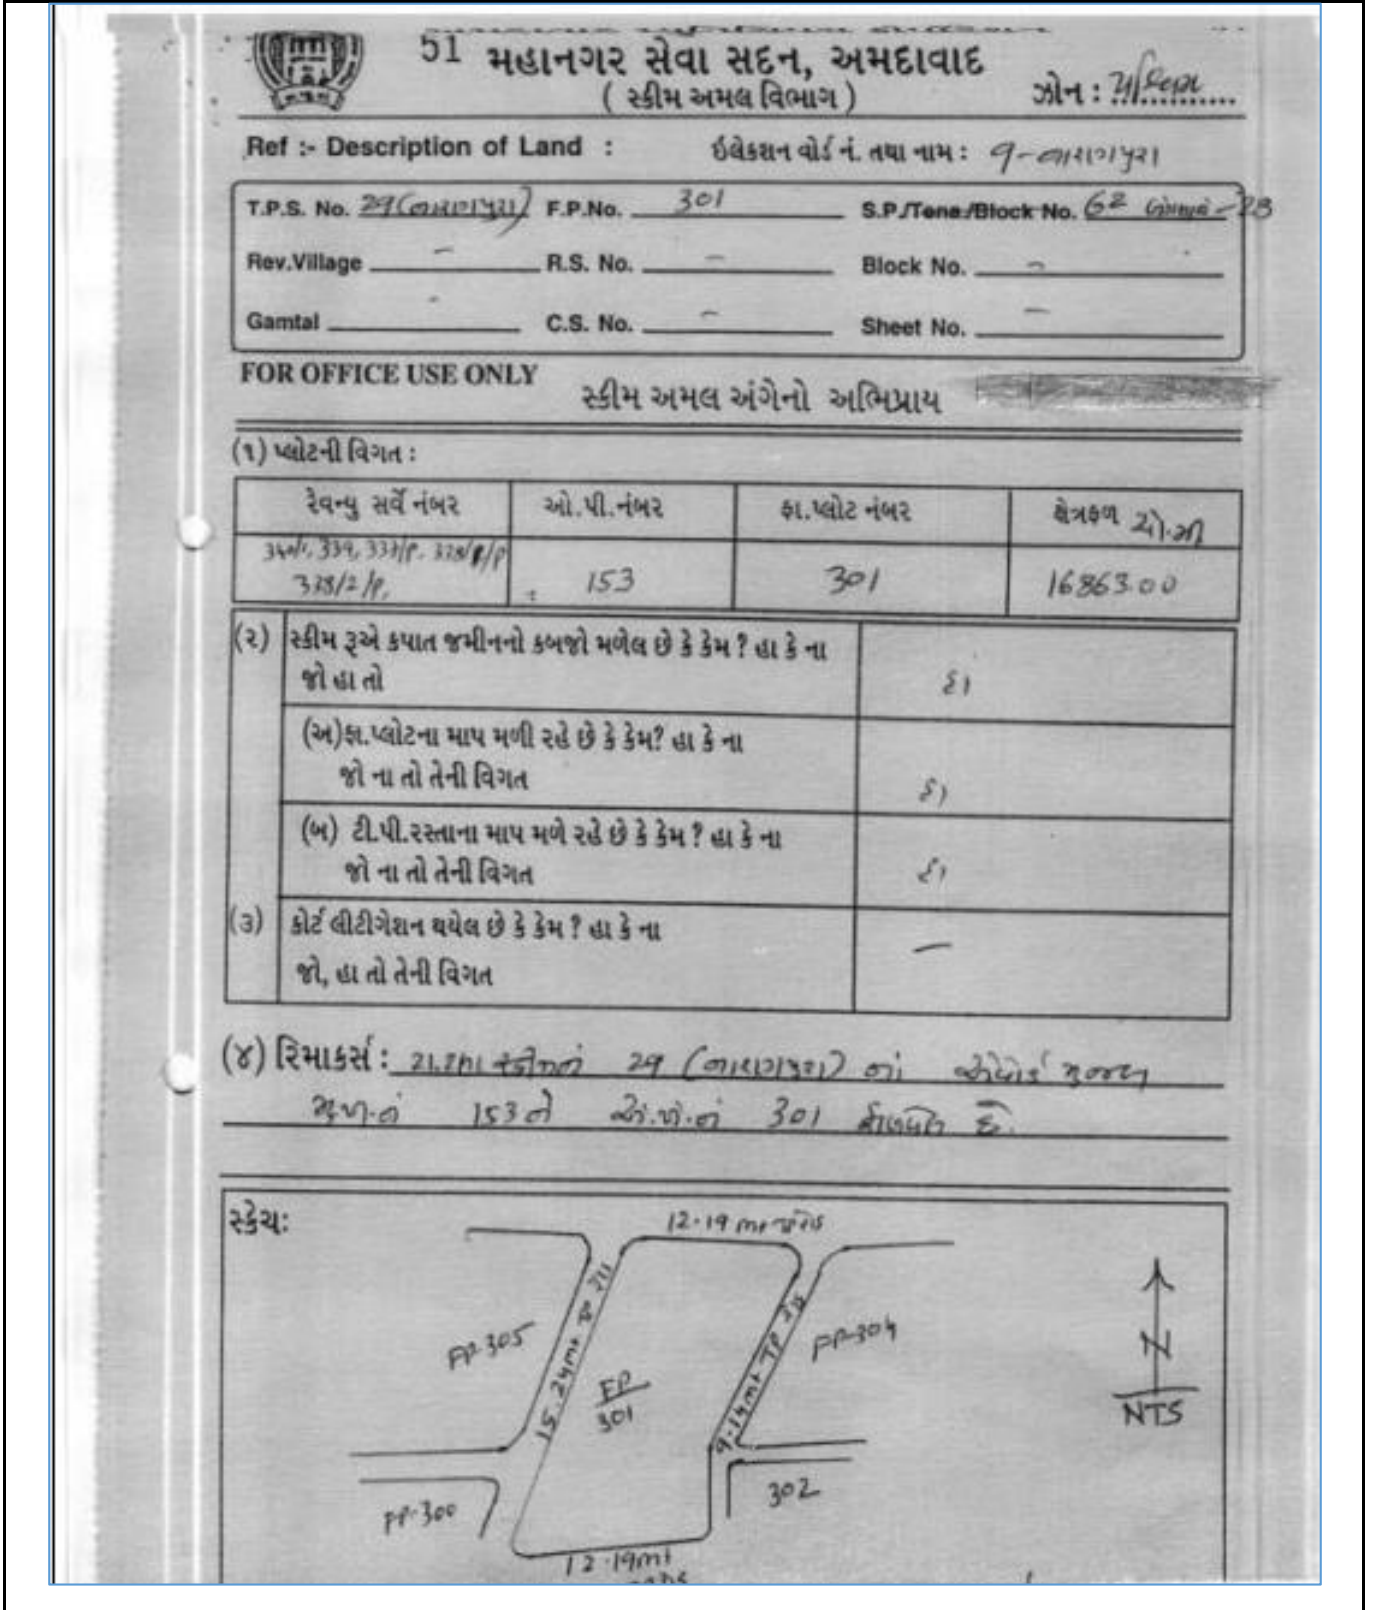 51 મહાનગર સેવા સદન, અમદાવાદ
( સ્કીમ અમલ વિભાગ )
ઝોન : પશ્ચિમ
Ref :- Description of Land :
ઇલેકશન વોર્ડ નં. તથા નામ : ૧-નારણપુરા
T.P.S. No. 29 (નારણપુરા) F.P.No. 301 S.P./Tena./Block No. 62 -28
Rev.Village - R.S. No. - Block No. -
Gamtal - C.S. No. - Sheet No. -
FOR OFFICE USE ONLY
સ્કીમ અમલ અંગેનો અભિપ્રાય
(૧) પ્લોટની વિગત :
રેવન્યુ સર્વે નંબર ઓ.પી.નંબર ફા.પ્લોટ નંબર ક્ષેત્રફળ ચો.મી
339, 337/P,
338/2/P, 153 301 16863.00
(૨) સ્કીમ રૂએ કપાત જમીનનો કબજો મળેલ છે કે કેમ ? હા કે ના
જો હા તો હા
(અ)ફા.પ્લોટના માપ મળી રહે છે કે કેમ? હા કે ના
જો ના તો તેની વિગત હા
(બ) ટી.પી.રસ્તાના માપ મળે રહે છે કે કેમ ? હા કે ના
જો ના તો તેની વિગત હા
(૩) કોર્ટ લીટીગેશન થયેલ છે કે કેમ ? હા કે ના
જો, હા તો તેની વિગત —
(૪) રિમાકર્સ : 29 (નારણપુરા) નાં મુજબ
મુ.ખ.નં 153 ને અં.ખં.નં 301 છે.
સ્કેચઃ
12.19 mt
15.24mt TP રોડ
9.14mt TP રોડ
FP-305
FP
301
FP-304
N
NTS
FP-300
302
12.19mt